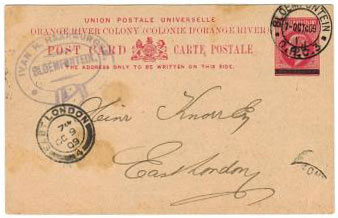 UNION POSTALE UNIVERSELLE
ORANGE RIVER COLONY (COLONIE D'ORANGE RIVER)
POST CARD CARTE POSTALE
THE ADDRESS ONLY TO BE WRITTEN ON THIS SIDE.
IVAN H.
BLOEMFONTEIN,
BLOEMFONTEIN
7-OCT 09
O.R.C.
EAST LONDON
Heinr Knorr Esq
East London